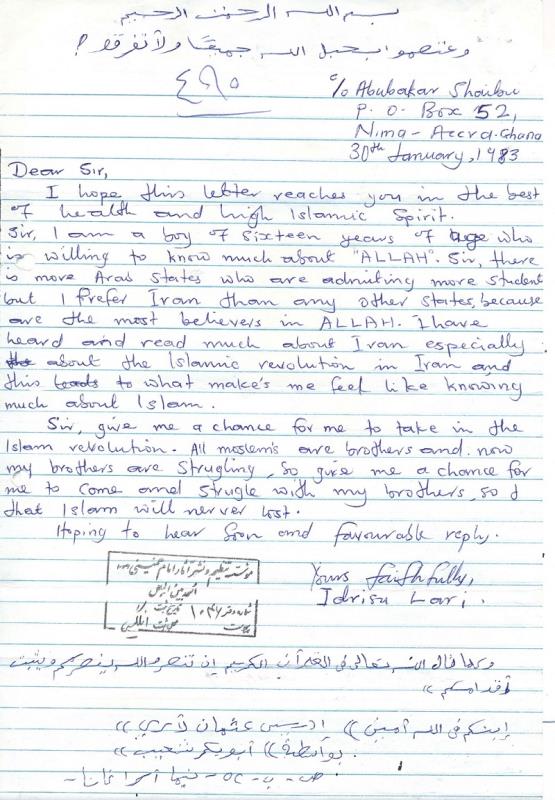 بسم الله الرحمن الرحيم
وعتصموا بحبل الله جميعًا ولا تفرقوا؟
℅ Abubakar Shaibu
P. O. Box 52,
Nima - Accra - Ghana
30th January, 1983
Dear Sir,
I hope this letter reaches you in the best
of health and high Islamic Spirit.
Sir, I am a boy of sixteen years of age who
is willing to know much about "ALLAH". Sir, there
is more Arab States who are admiting more student
but I prefer Iran than any other states, because
are the most believers in ALLAH. I have
heard and read much about Iran especially
about the Islamic revolution in Iran and
this leads to what make's me feel like knowing
much about Islam.
Sir, give me a chance for me to take in the
Islam revolution. All moslem's are brothers and now
my brothers are Strugling, so give me a chance for
me to come and strugle with my brothers, so
that Islam will nerver lost.
Hoping to hear Soon and favourable reply.
Yours faithfully,
Idrisu Lari.
مؤسسه تنظیم و نشر آثار امام خمینی
وكما قال الله تعالى في القرآن الكريم إن تنصروا الله ينصركم ويثبت
أقدامكم »
إبنكم في الله أمين « إدريس عثمان لاري »
بواسطة « أبوبكر شعيب »
ص - ب - ٥٢ - نيما أكرا غانا -